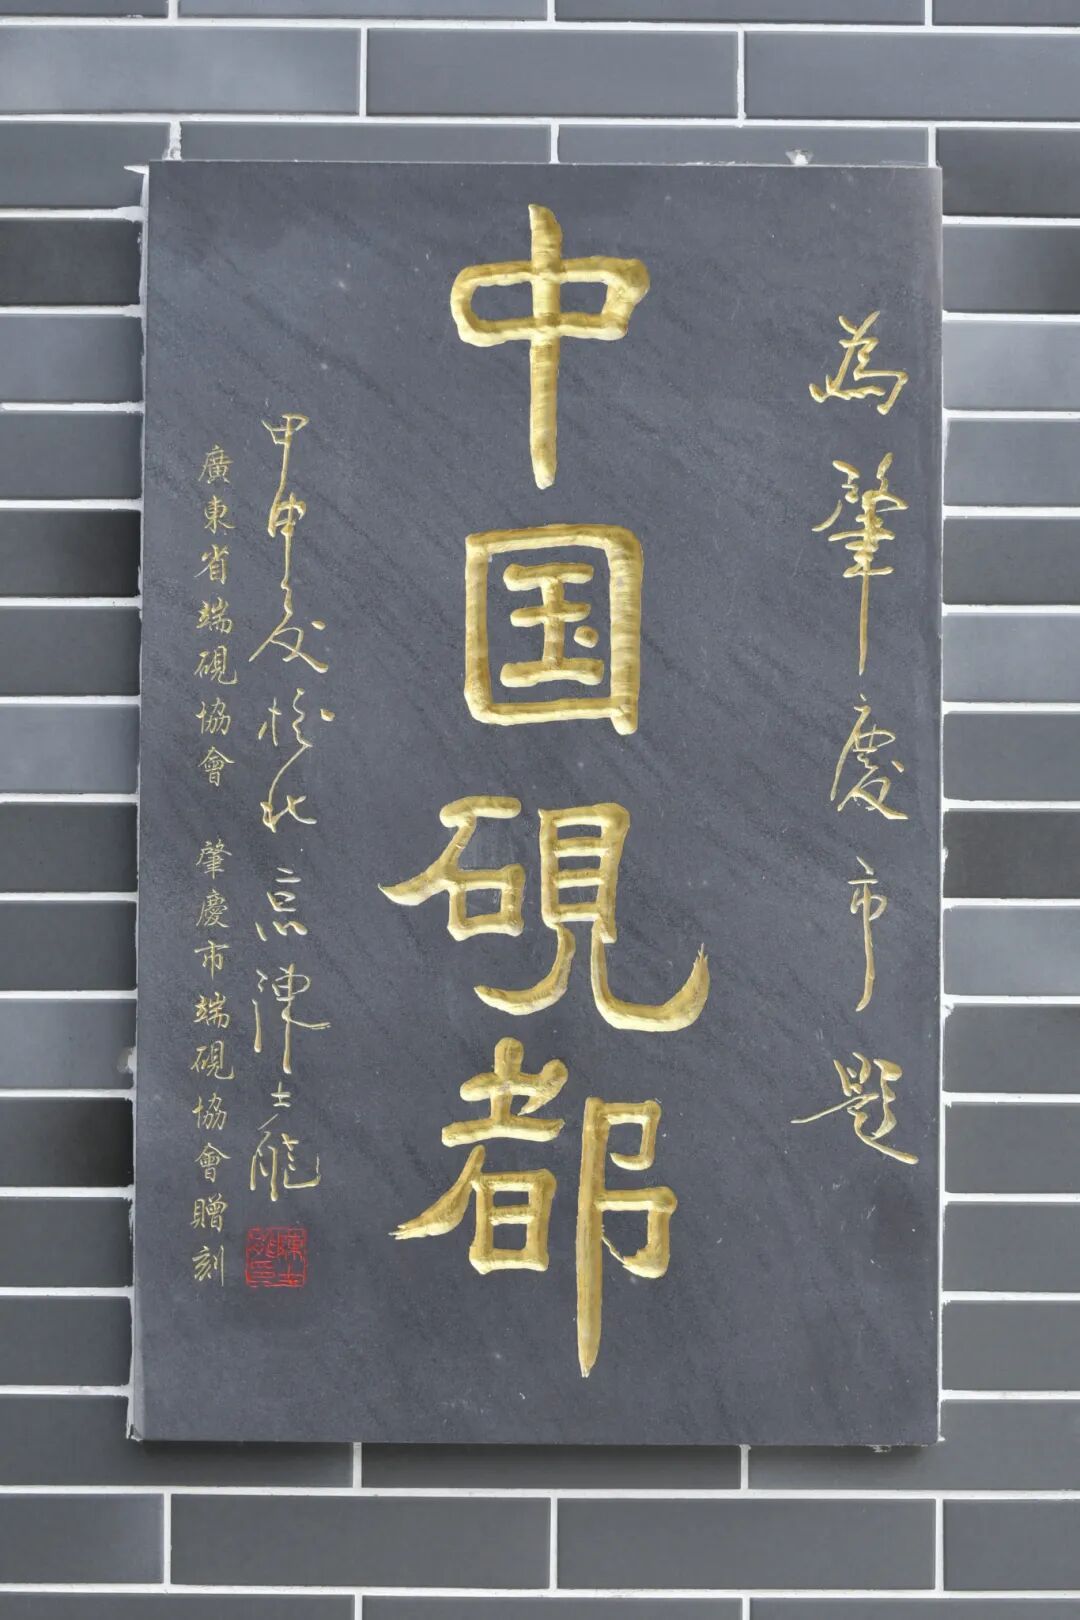 為肇慶市題
中国硯都
甲申夏於北京陳士能
廣東省端硯協會 肇慶市端硯協會贈刻